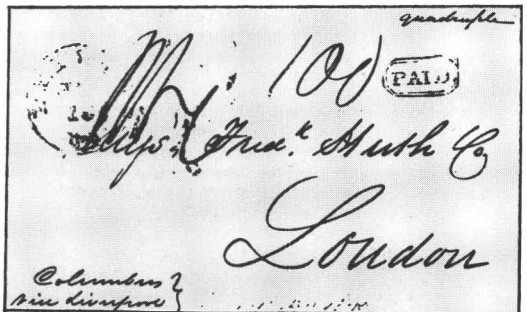 quadruple
100 PAID
Fredk. Huth Co
London
Columbus
via Liverpool